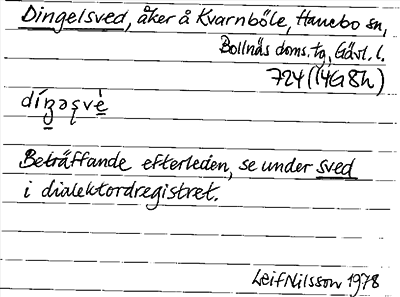 Dingelsved, åker å Kvarnböle, Hanebo sn,
Bollnäs doms. tg, Gävl. l.
724 (14G8h)
Beträffande efterleden, se under sved
i dialektordregistret.
Leif Nilsson 1978